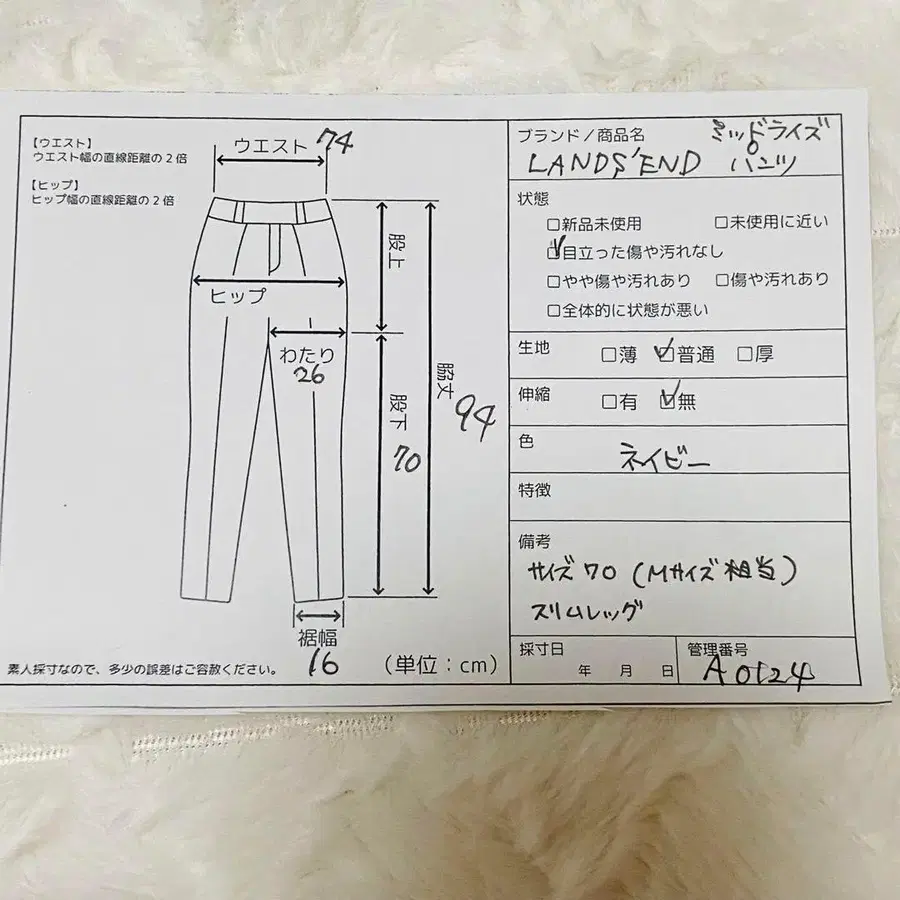 【ウエスト】
ウエスト幅の直線距離の2倍
【ヒップ】
ヒップ幅の直線距離の2倍
ウエスト 74
股上
ヒップ
わたり
26
脇丈
94
股下
70
裾幅
16
(単位:cm)
素人採寸なので、多少の誤差はご容赦ください。
ブランド/商品名 ミッドライズ
LANDS'END パンツ
状態
□新品未使用 □未使用に近い
☑目立った傷や汚れなし
□やや傷や汚れあり □傷や汚れあり
□全体的に状態が悪い
生地 □薄 ☑普通 □厚
伸縮 □有 ☑無
色
ネイビー
特徴
備考
サイズ70(Mサイズ相当)
スリムレッグ
採寸日
年 月 日
管理番号
A0124